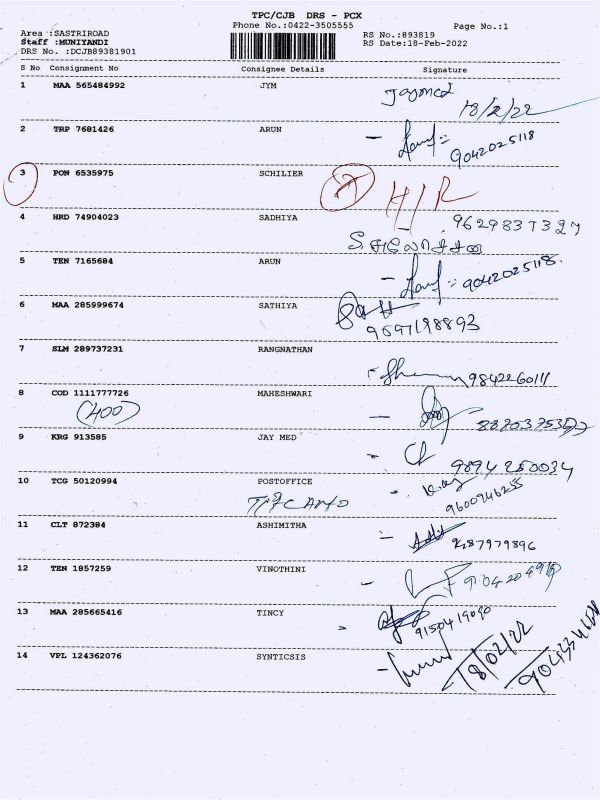 TPC/CJB DRS - PCX
Phone No.:0422-3505555 Page No.:1
Area :SASTRIROAD
Staff :MUNIYANDI
DRS No. :DCJB89381901
RS No.:893819
RS Date:18-Feb-2022
S No Consignment No Consignee Details Signature
1 MAA 565484992 JYM
18/2/22
2 TRP 7681426 ARUN
9042025118
3 PON 6535975 SCHILIER H/R
4 HRD 74904023 SADHIYA 9629837327
5 TEN 7165684 ARUN 9042025118.
6 MAA 285999674 SATHIYA
9597198893
7 SLM 289737231 RANGNATHAN
9842260111
8 COD 1111777726 MAHESHWARI
(400)
9 KRG 913585 JAY MED
9894250034
10 TCG 50120994 POSTOFFICE
9600946255
11 CLT 872384 ASHIMITHA
12 TEN 1857259 VINOTHINI
13 MAA 285665416 TINCY
9150419090
14 VPL 124362076 SYNTICSIS
18/02/22